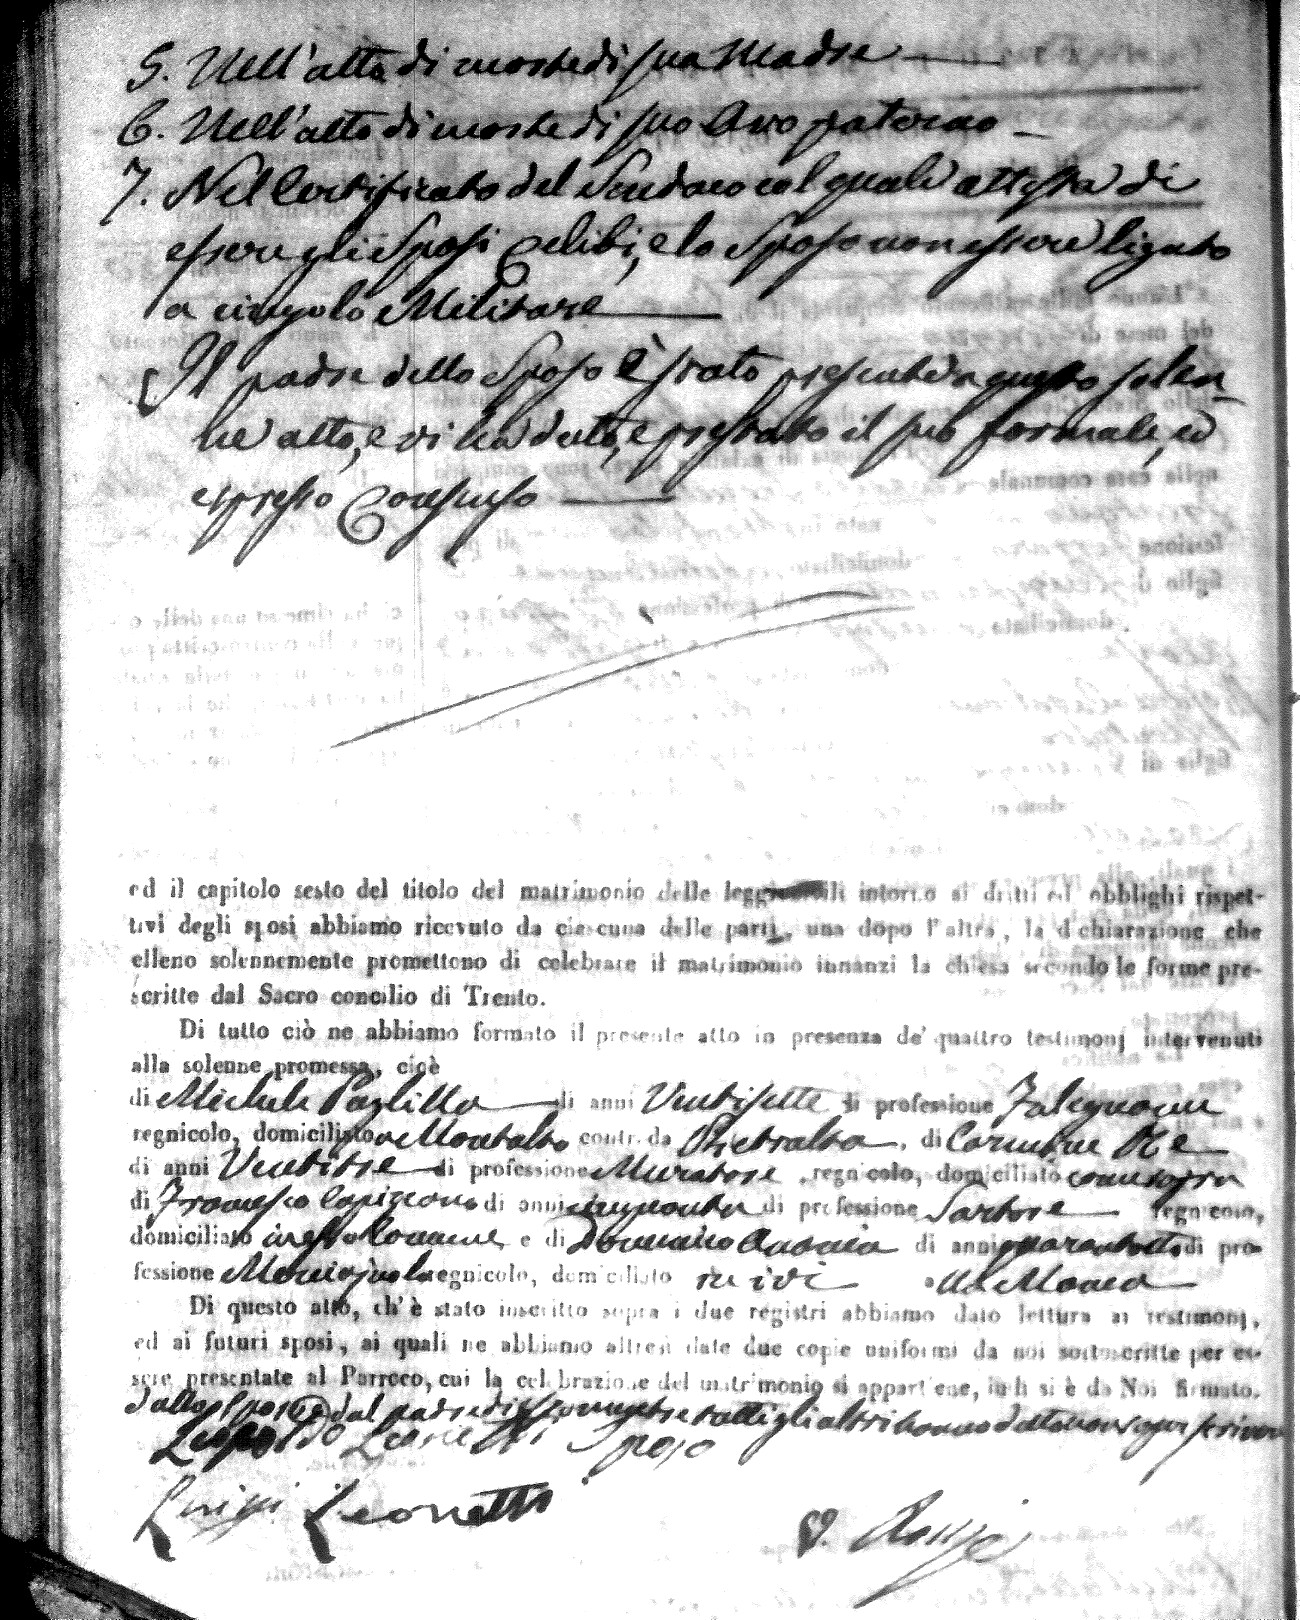 5. Nell'atto di morte di sua Madre
6. Nell'atto di morte di suo Avo paterno
7. Nel Certificato del Sindaco col quale attesta di
essere gli Sposi Celibi, e lo Sposo non essere ligato
a cingolo Militare
Il padre dello Sposo è stato presente a questo solen
ne atto, e vi ha dato, e prestato il suo formale, ed
espresso Consenso
ed il capitolo sesto del titolo del matrimonio delle leggi civili intorno ai dritti ed obblighi rispet-
tivi degli sposi abbiamo ricevuto da ciascuna delle parti, una dopo l'altra, la dichiarazione che
elleno solennemente promettono di celebrare il matrimonio innanzi la chiesa secondo le forme pre-
scritte dal Sacro concilio di Trento.
Di tutto ciò ne abbiamo formato il presente atto in presenza de' quattro testimonj intervenuti
alla solenne promessa, cioè
di Michele di anni Ventisette di professione Falegname
regnicolo, domiciliato a Montalto contr. da Pietralta, di Carmine
di anni Ventitre di professione Muratore, regnicolo, domiciliato come sopra
di Francesco di anni cinquanta di professione Sartore regnicolo,
domiciliato in esso Comune e di Domenico di anni quarantotto di pro-
fessione regnicolo, domiciliato in ivi
Di questo atto, ch' è stato inscritto sopra i due registri abbiamo dato lettura ai testimonj,
ed ai futuri sposi, ai quali ne abbiamo altresì date due copie uniformi da noi sottoscritte per es-
sere presentate al Parroco, cui la celebrazione del matrimonio si appartiene, indi si è da Noi firmato.
dallo Sposo e dal padre di esso mentre tutti gli altri hanno detto non saper scrivere
Leopoldo Leonetti Sposo
Luigi Leonetti